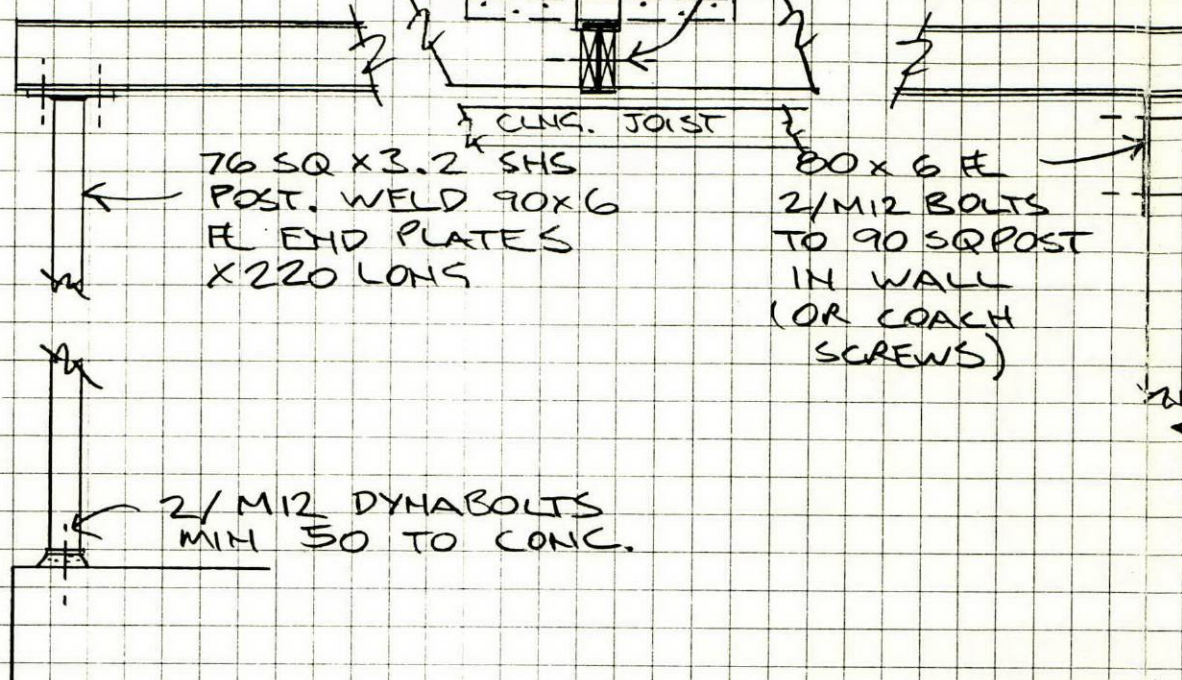 CLNG. JOIST
76 SQ X 3.2 SHS
POST. WELD 90X6
FL END PLATES
X220 LONG
80 x 6 FL
2/M12 BOLTS
TO 90 SQ POST
IN WALL
(OR COACH
SCREWS)
2/M12 DYNABOLTS
MIN 50 TO CONC.